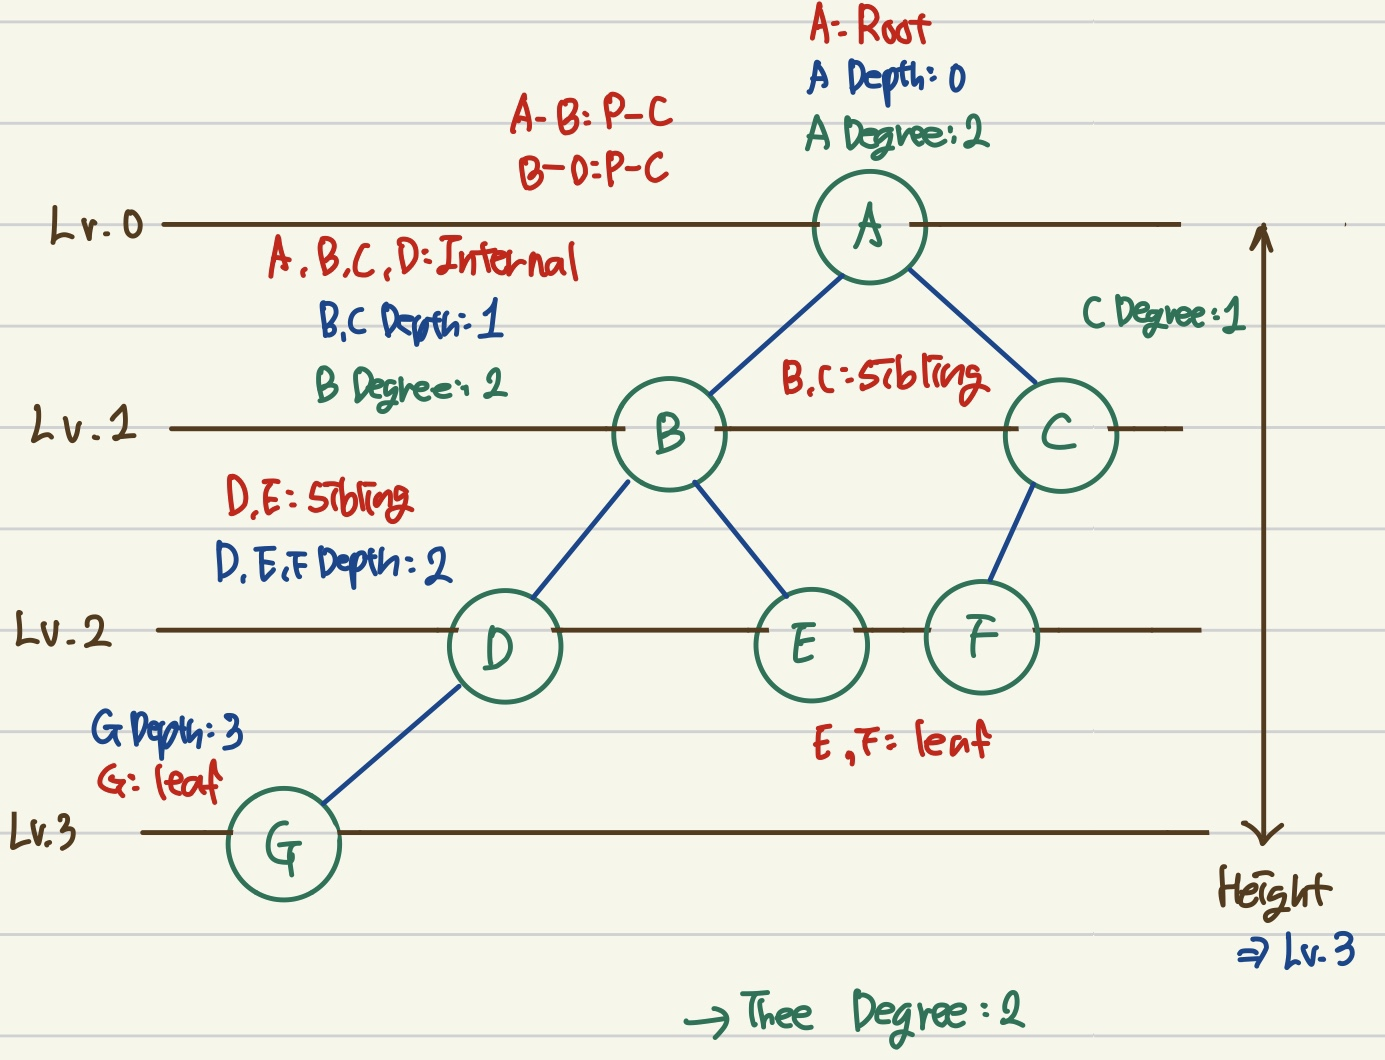 A: Root
A Depth: 0
A Degree: 2
A-B: P-C
B-D: P-C
Lv. 0
A
A, B, C, D: Internal
B, C Depth: 1
B Degree: 2
C Degree: 1
B, C: Sibling
Lv. 1
B
C
D, E: Sibling
D, E, F Depth: 2
Lv. 2
D
E
F
G Depth: 3
G: leaf
E, F: leaf
Lv. 3
G
Height
⇒ Lv. 3
→ Thee Degree: 2